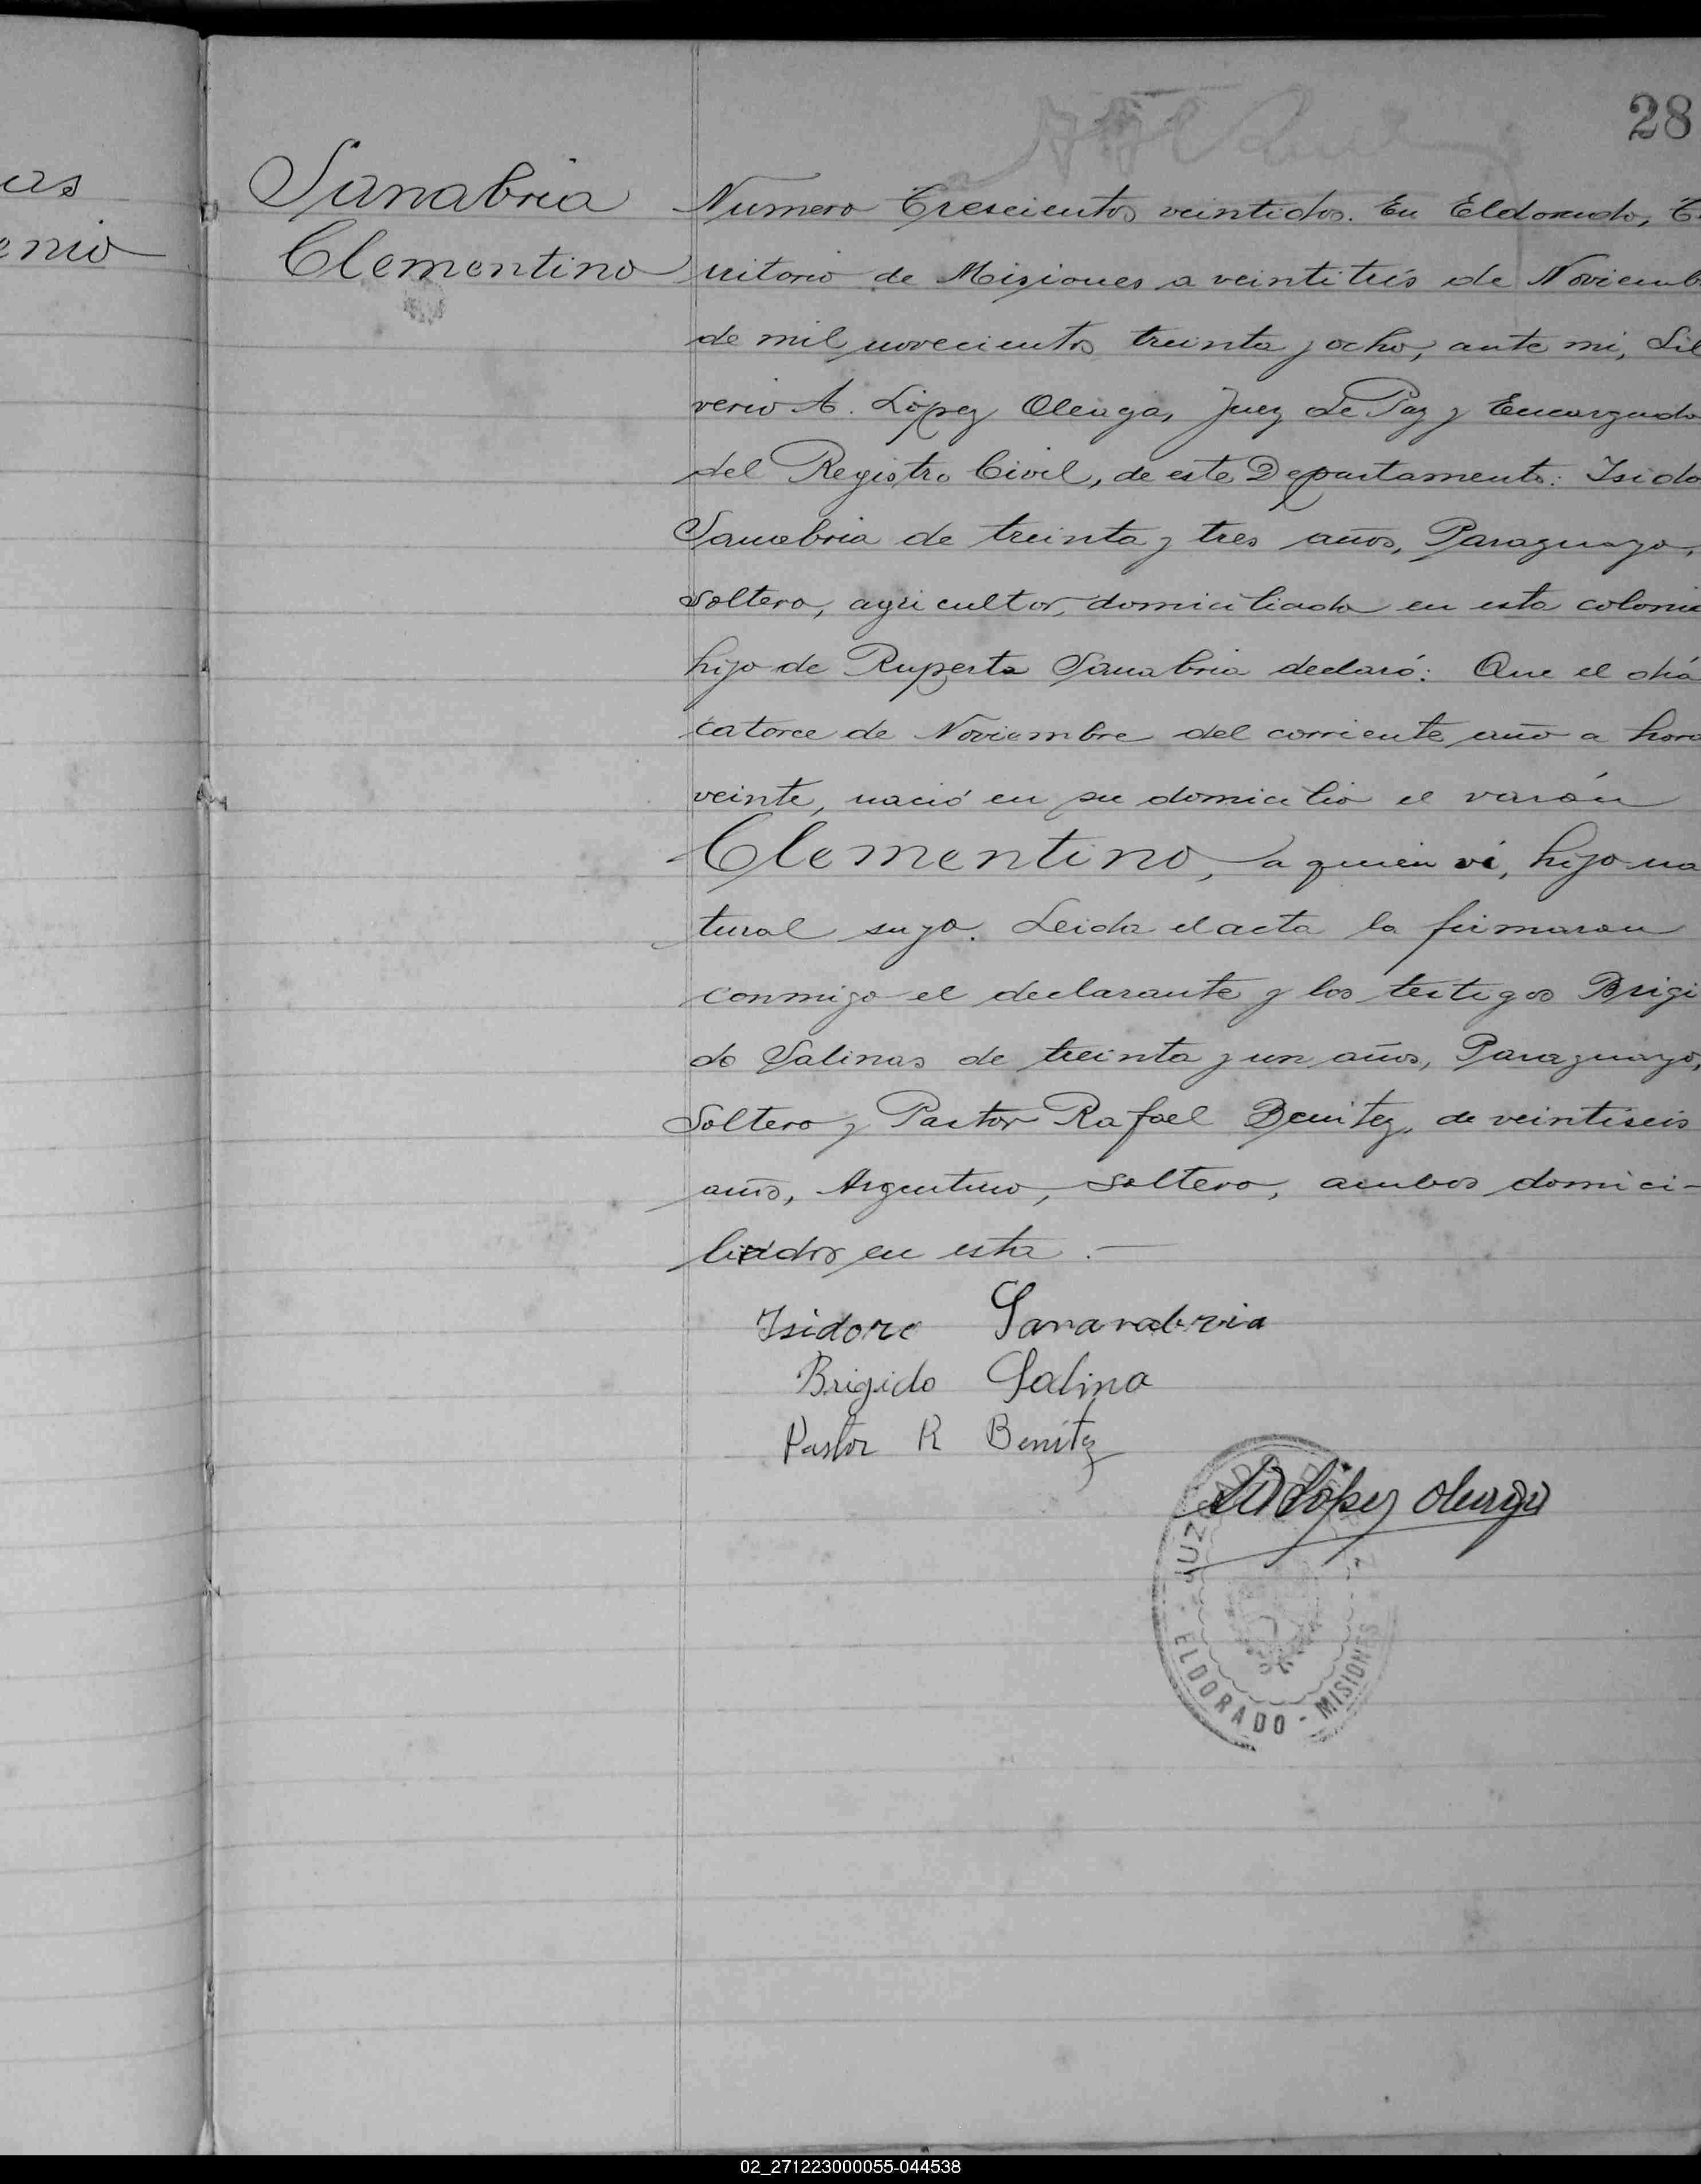 28
as
enio
Sanabria
Clementino
Numero Trescientos veintidos. En Eldorado, Te
rritorio de Misiones a veintitrés de Noviemb
de mil novecientos treinta y ocho, ante mi, Sil
verio A. López Oleaga, Juez de Paz y Encargado
del Registro Civil, de este Departamento: Isido
Sanabria de treinta y tres años, Paraguayo,
soltero, agricultor, domiciliado en esta colonia
hijo de Ruperta Sanabria declaró: Que el día
catorce de Noviembre del corriente año a hora
veinte, nació en su domicilio el varón
Clementino, a quien vi, hijo na
tural suyo. Leida el acta la firmaron
conmigo el declarante y los testigos Brigi
do Salinas de treinta y un años, Paraguayo,
Soltero y Pastor Rafael Benitez, de veintiseis
años, Argentino, soltero, ambos domici-
liados en esta.—
Isidoro Sananabria
Brigido Salina
Pastor R Benítez
López Oleaga
JUZGADO DE PAZ
ELDORADO - MISIONES
02_271223000055-044538